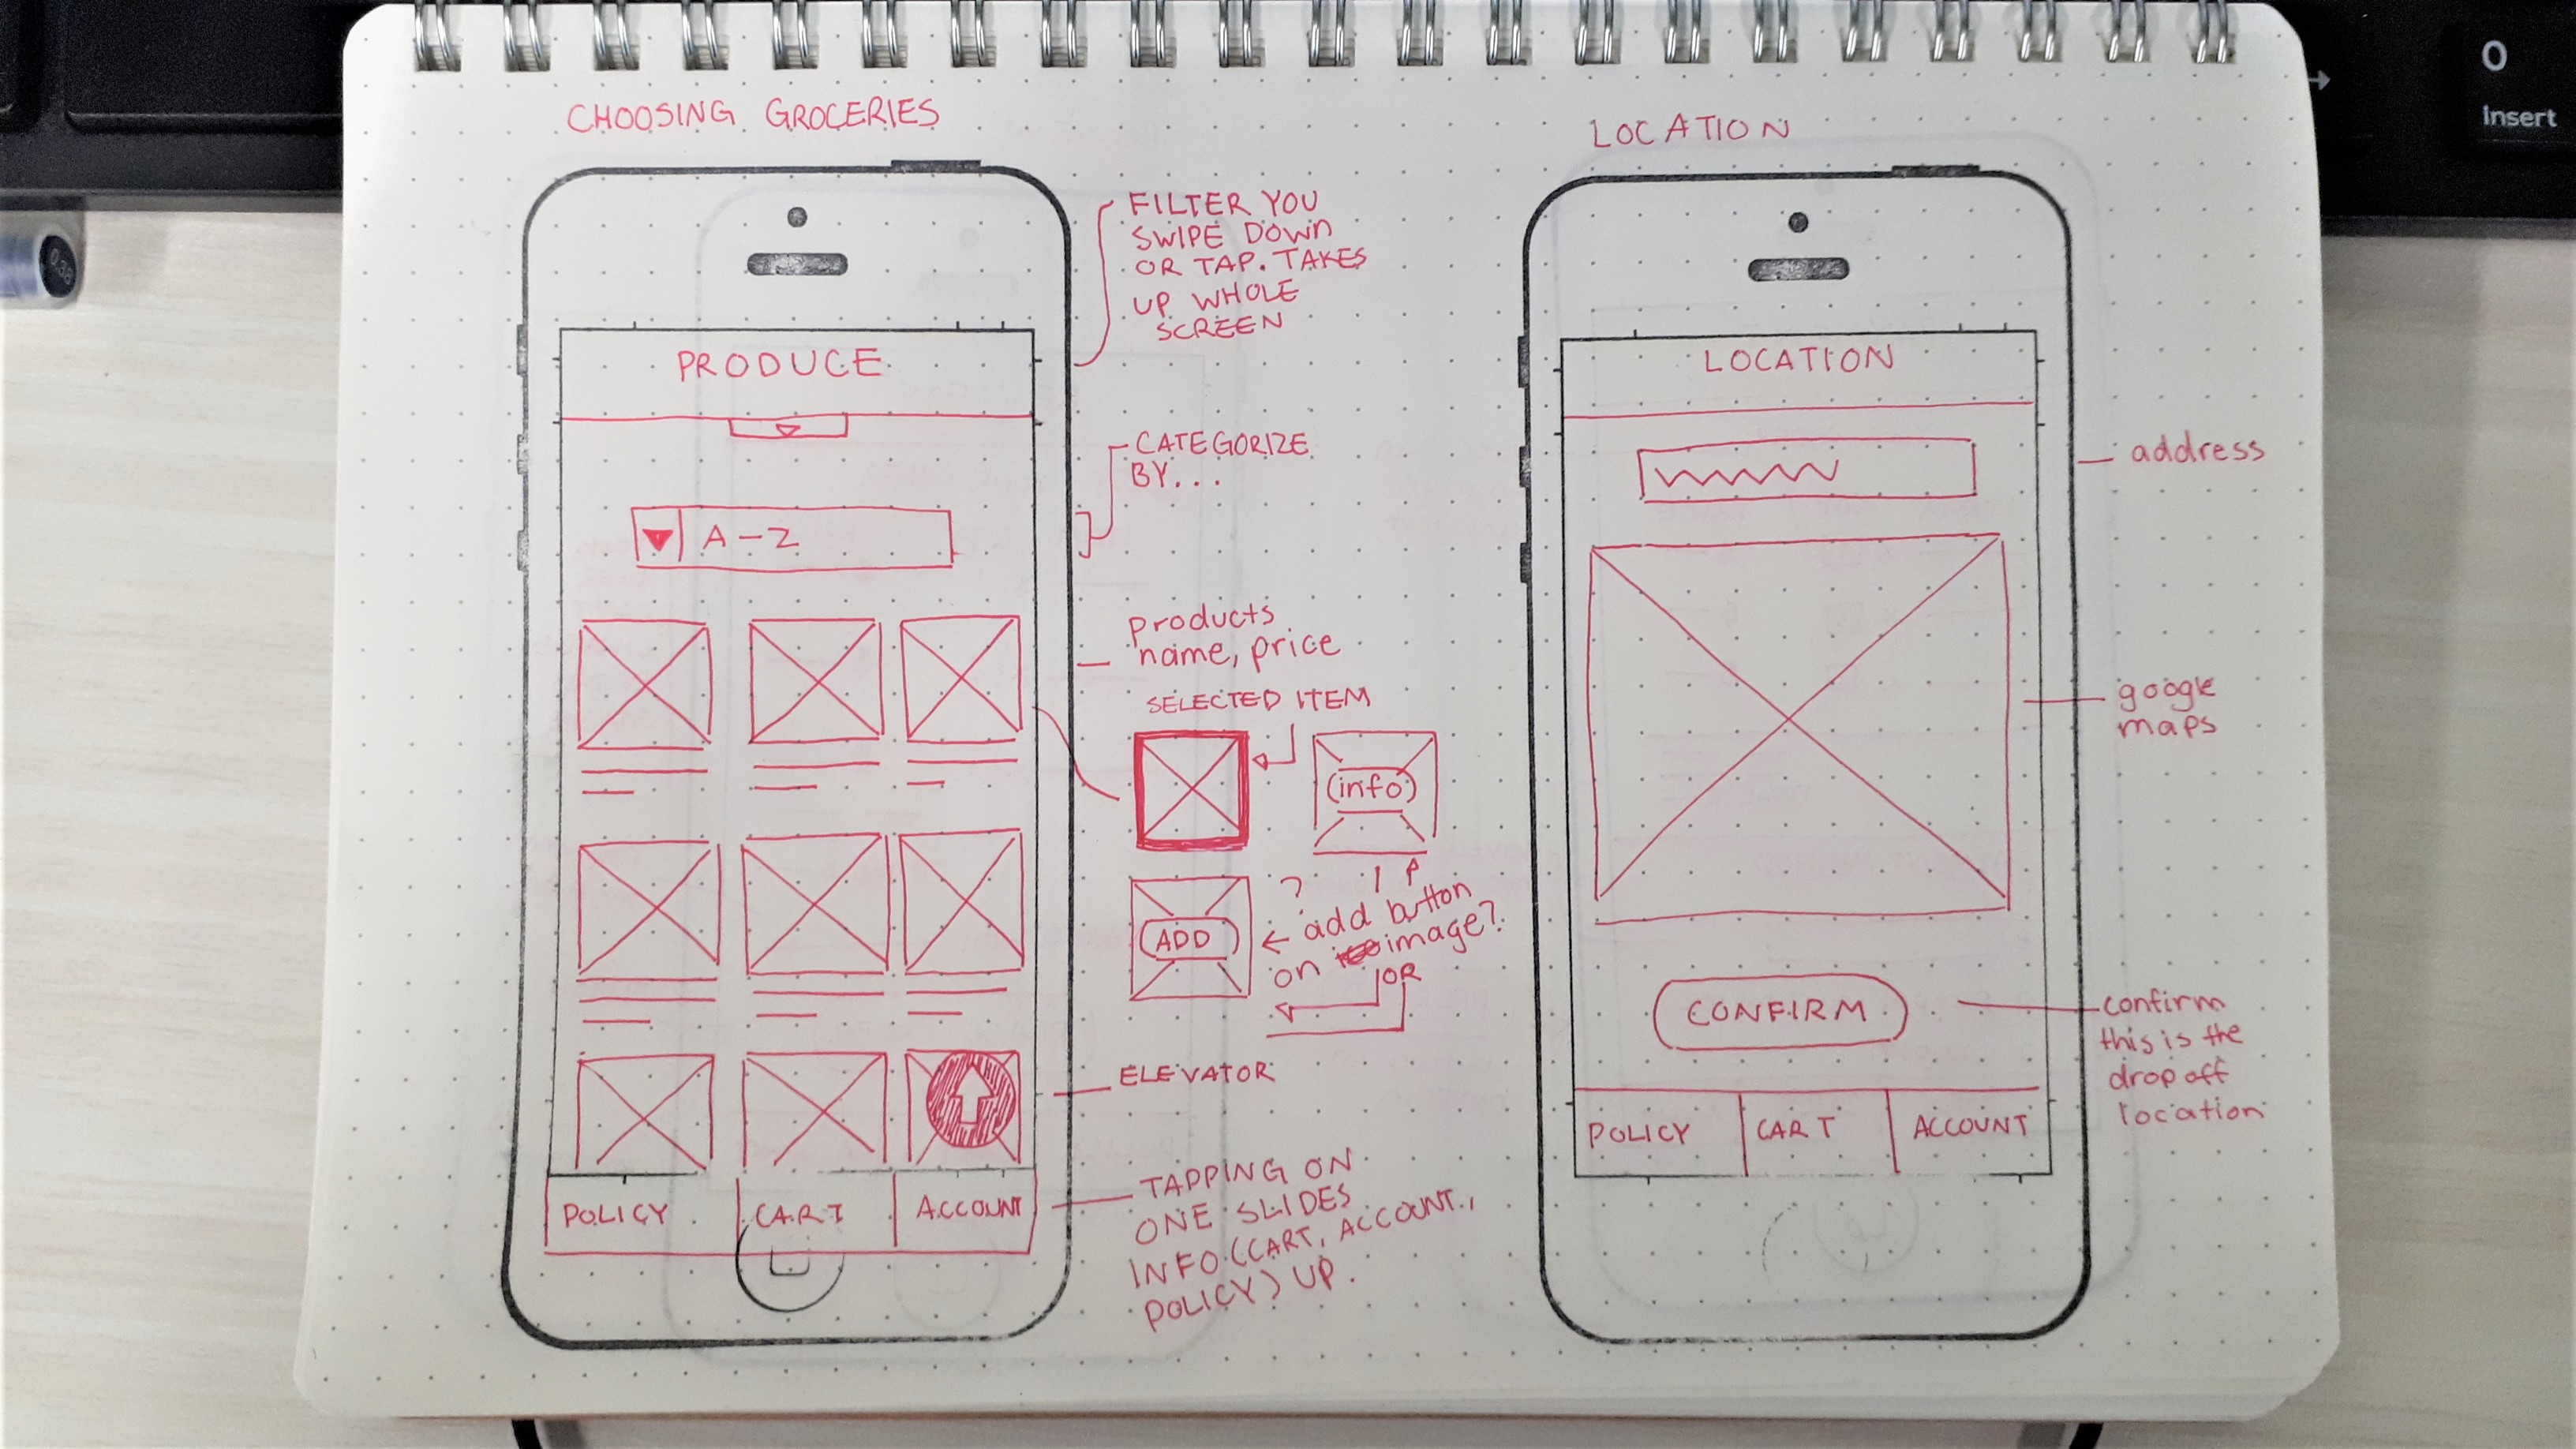 CHOOSING GROCERIES
PRODUCE
A-Z
POLICY
CART
ACCOUNT
FILTER YOU
SWIPE DOWN
OR TAP. TAKES
UP WHOLE
SCREEN
CATEGORIZE
BY...
products
name, price
SELECTED ITEM
info
ADD
?
add button
on image?
OR
ELEVATOR
TAPPING ON
ONE SLIDES
INFO (CART, ACCOUNT,
POLICY) UP.
LOCATION
LOCATION
CONFIRM
POLICY
CART
ACCOUNT
address
google
maps
confirm
this is the
drop off
location
0
Insert
0.38